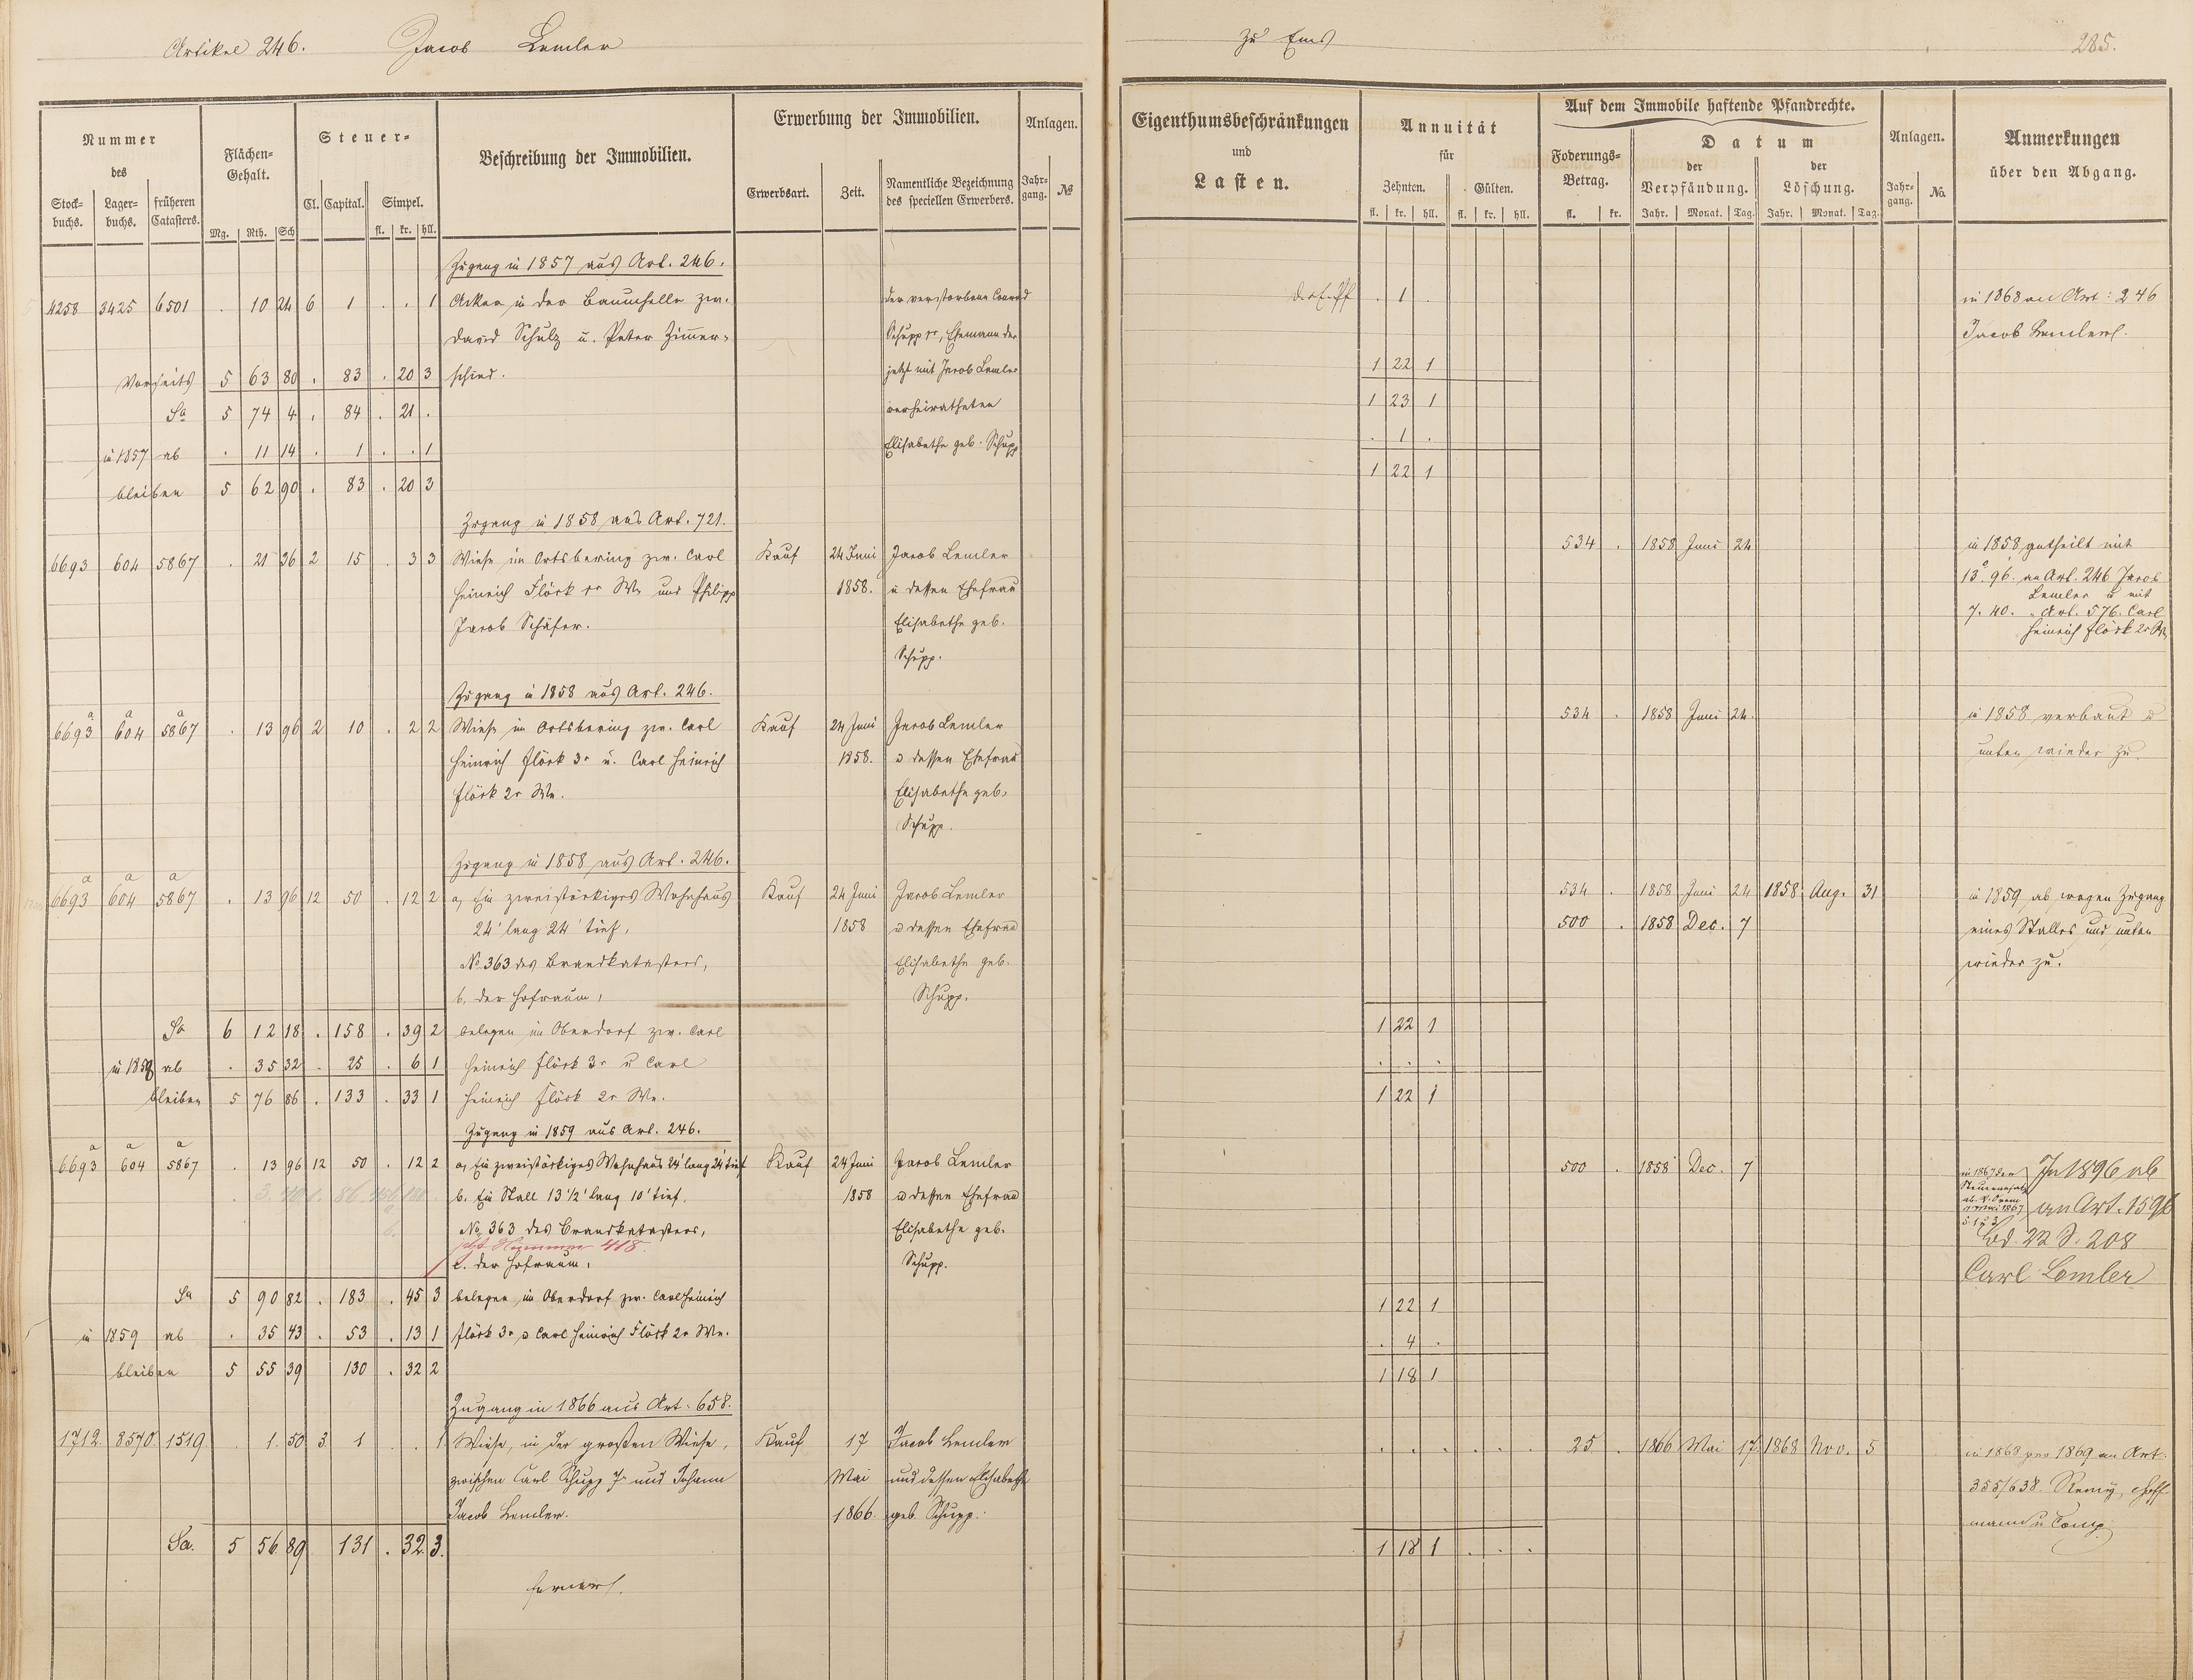 Artikel 246. Jacob Lemler
Nummer des
Stock-buchs. Lager-buchs. früheren Catasters.
Flächen-Gehalt.
Mg. Rth. Sch
Steuer-
Cl. Capital. Simpel.
fl. kr. hll.
Beschreibung der Immobilien.
Erwerbung der Immobilien.
Erwerbsart. Zeit. Namentliche Bezeichnung des speciellen Erwerbers.
Anlagen.
Jahr-gang. №
Zugang in 1857 aus Art. 246.
4258 3425 6501 . 10 24 6 1 . . 1 Acker in der Baumhelle zw. der verstorbene Conrad
David Schulz u. Peter Zimer- Schupp 1r, Ehemann der
Vorseits 5 63 80 . 83 . 20 3 schied. jetzt mit Jacob Lemler
Sa 5 74 4 . 84 . 21 . verheiratheten
in 1857 ab . 11 14 . 1 . . 1 Elisabethe geb. Schupp
bleiben 5 62 90 . 83 . 20 3
Zugang in 1858 aus Art. 721.
6693 604 5867 . 21 36 2 15 . 3 3 Wiese im Ortsbering zw. Carl Kauf 24 Juni Jacob Lemler
Heinrich Flöck 3r We und Philipp 1858. u dessen Ehefrau
Jacob Schäfer. Elisabethe geb.
Schupp.
Zugang in 1858 aus Art. 246.
6693a 604a 5867a . 13 96 2 10 . 2 2 Wiese im Ortsbering zw. Carl Kauf 24 Juni Jacob Lemler
Heinrich Flöck 3r u. Carl Heinrich 1858. u dessen Ehefrau
Flöck 2r We. Elisabethe geb.
Schupp.
Zugang in 1858 aus Art. 246.
6693a 604a 5867a . 13 96 12 50 . 12 2 a, Ein zweistöckiges Wohnhaus Kauf 24 Juni Jacob Lemler
24' lang 24' tief, 1858 u dessen Ehefrau
No. 363 des Brandkatasters, Elisabethe geb.
b, der Hofraum, Schupp.
Sa 6 12 18 . 158 . 39 2 belegen im Oberdorf zw. Carl
in 1858 ab . 35 32 . 25 . 6 1 Heinrich Flöck 3r u Carl
bleiben 5 76 86 . 133 . 33 1 Heinrich Flöck 2r We.
Zugang in 1859 aus Art. 246.
6693a 604a 5867a . 13 96 12 50 . 12 2 a, Ein zweistöckiges Wohnhaus 24' lang 24' tief Kauf 24 Juni Jacob Lemler
b. Ein Stall 13 1/2' lang 10' tief, 1858 u dessen Ehefrau
No. 363 des Brandkatasters, Elisabethe geb.
jetzt Nummer 418.
c. der Hofraum, Schupp.
Sa 5 90 82 . 183 . 45 3 belegen im Oberdorf zw. Carl Heinrich
in 1859 ab . 35 43 . 53 . 13 1 Flöck 3r u Carl Heinrich Flöck 2r We.
bleiben 5 55 39 130 . 32 2
Zugang in 1866 aus Art. 658.
1712. 8570. 1519 . 1. 50 3 1 . . 1 Wiese, in der großen Wiese, Kauf 17 Jacob Lemler
zwischen Carl Schupp 7r und Johann Mai und dessen Elisabethe
Jacob Lemler. 1866. geb. Schupp.
Sa. 5 56 89 131 . 32 3.
ferners.
zu Ems 285.
Eigenthumsbeschränkungen und Lasten.
Annuität für
Zehnten. Gülten.
fl. kr. hll. fl. kr. hll.
Auf dem Immobile haftende Pfandrechte.
Foderungs-Betrag.
fl. kr.
Datum
der Verpfändung. der Löschung.
Jahr. Monat. Tag. Jahr. Monat. Tag.
Anlagen.
Jahr-gang. No.
Anmerkungen über den Abgang.
. 1 . in 1868 an Art: 246
Jacob Lemlers.
1 22 1
1 23 1
. 1 .
1 22 1
534 . 1858 Juni 24 in 1858 getheilt mit
13. 96. an Art. 246 Jacob
Lemler u mit
7. 40. " Art. 576. Carl
Heinrich Flöck 2r We
534 . 1858 Juni 24. in 1858 verbaut u
unten wieder zu.
534 . 1858 Juni 24 1858 Aug. 31 in 1859 ab wegen Zugang
500 . 1858 Dec. 7 eines Stalles und unten
wieder zu.
1 22 1
. . .
1 22 1
500 . 1858 Dec. 7 in 1867 den In 1896 ab
an Art. 1596
Bd. 22 S. 208
Carl Lemler
1 22 1
. 4 .
1 18 1
. . . . . . 25. . 1866 Mai 17. 1868 Nov. 5 in 1868 pro 1869 an Art.
355/638. Remy, Hoff
mann u Comp.
1 18 1 . . .